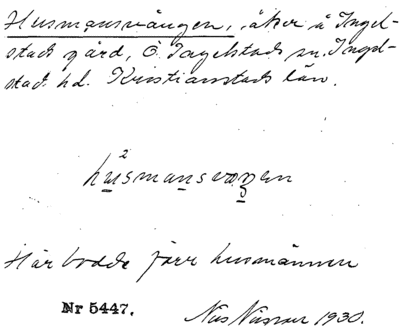 Husmansvången, åker å Ingel-
stads gård, Ö. Ingelstads sn. Ingel-
stad hd. Kristianstads län.
hùsmansvɔŋen
Här bodde förr husmännen
Nr 5447.
1930.